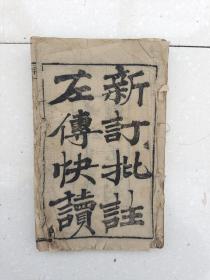 新訂批註
左傳快讀